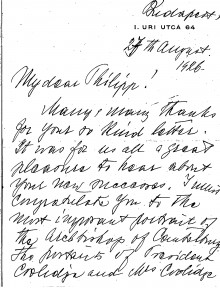 Budapest,
I. URI UTCA 64
27th August
1926.
My dear Philipp!
Many, many thanks
for your so kind letter.
It was for us all a great
pleasure to hear about
your new successes. I must
congratulate you to the
most important portrait of
the Archbishop of Canterbury
The portraits of President
Coolidge and Mrs Coolidge